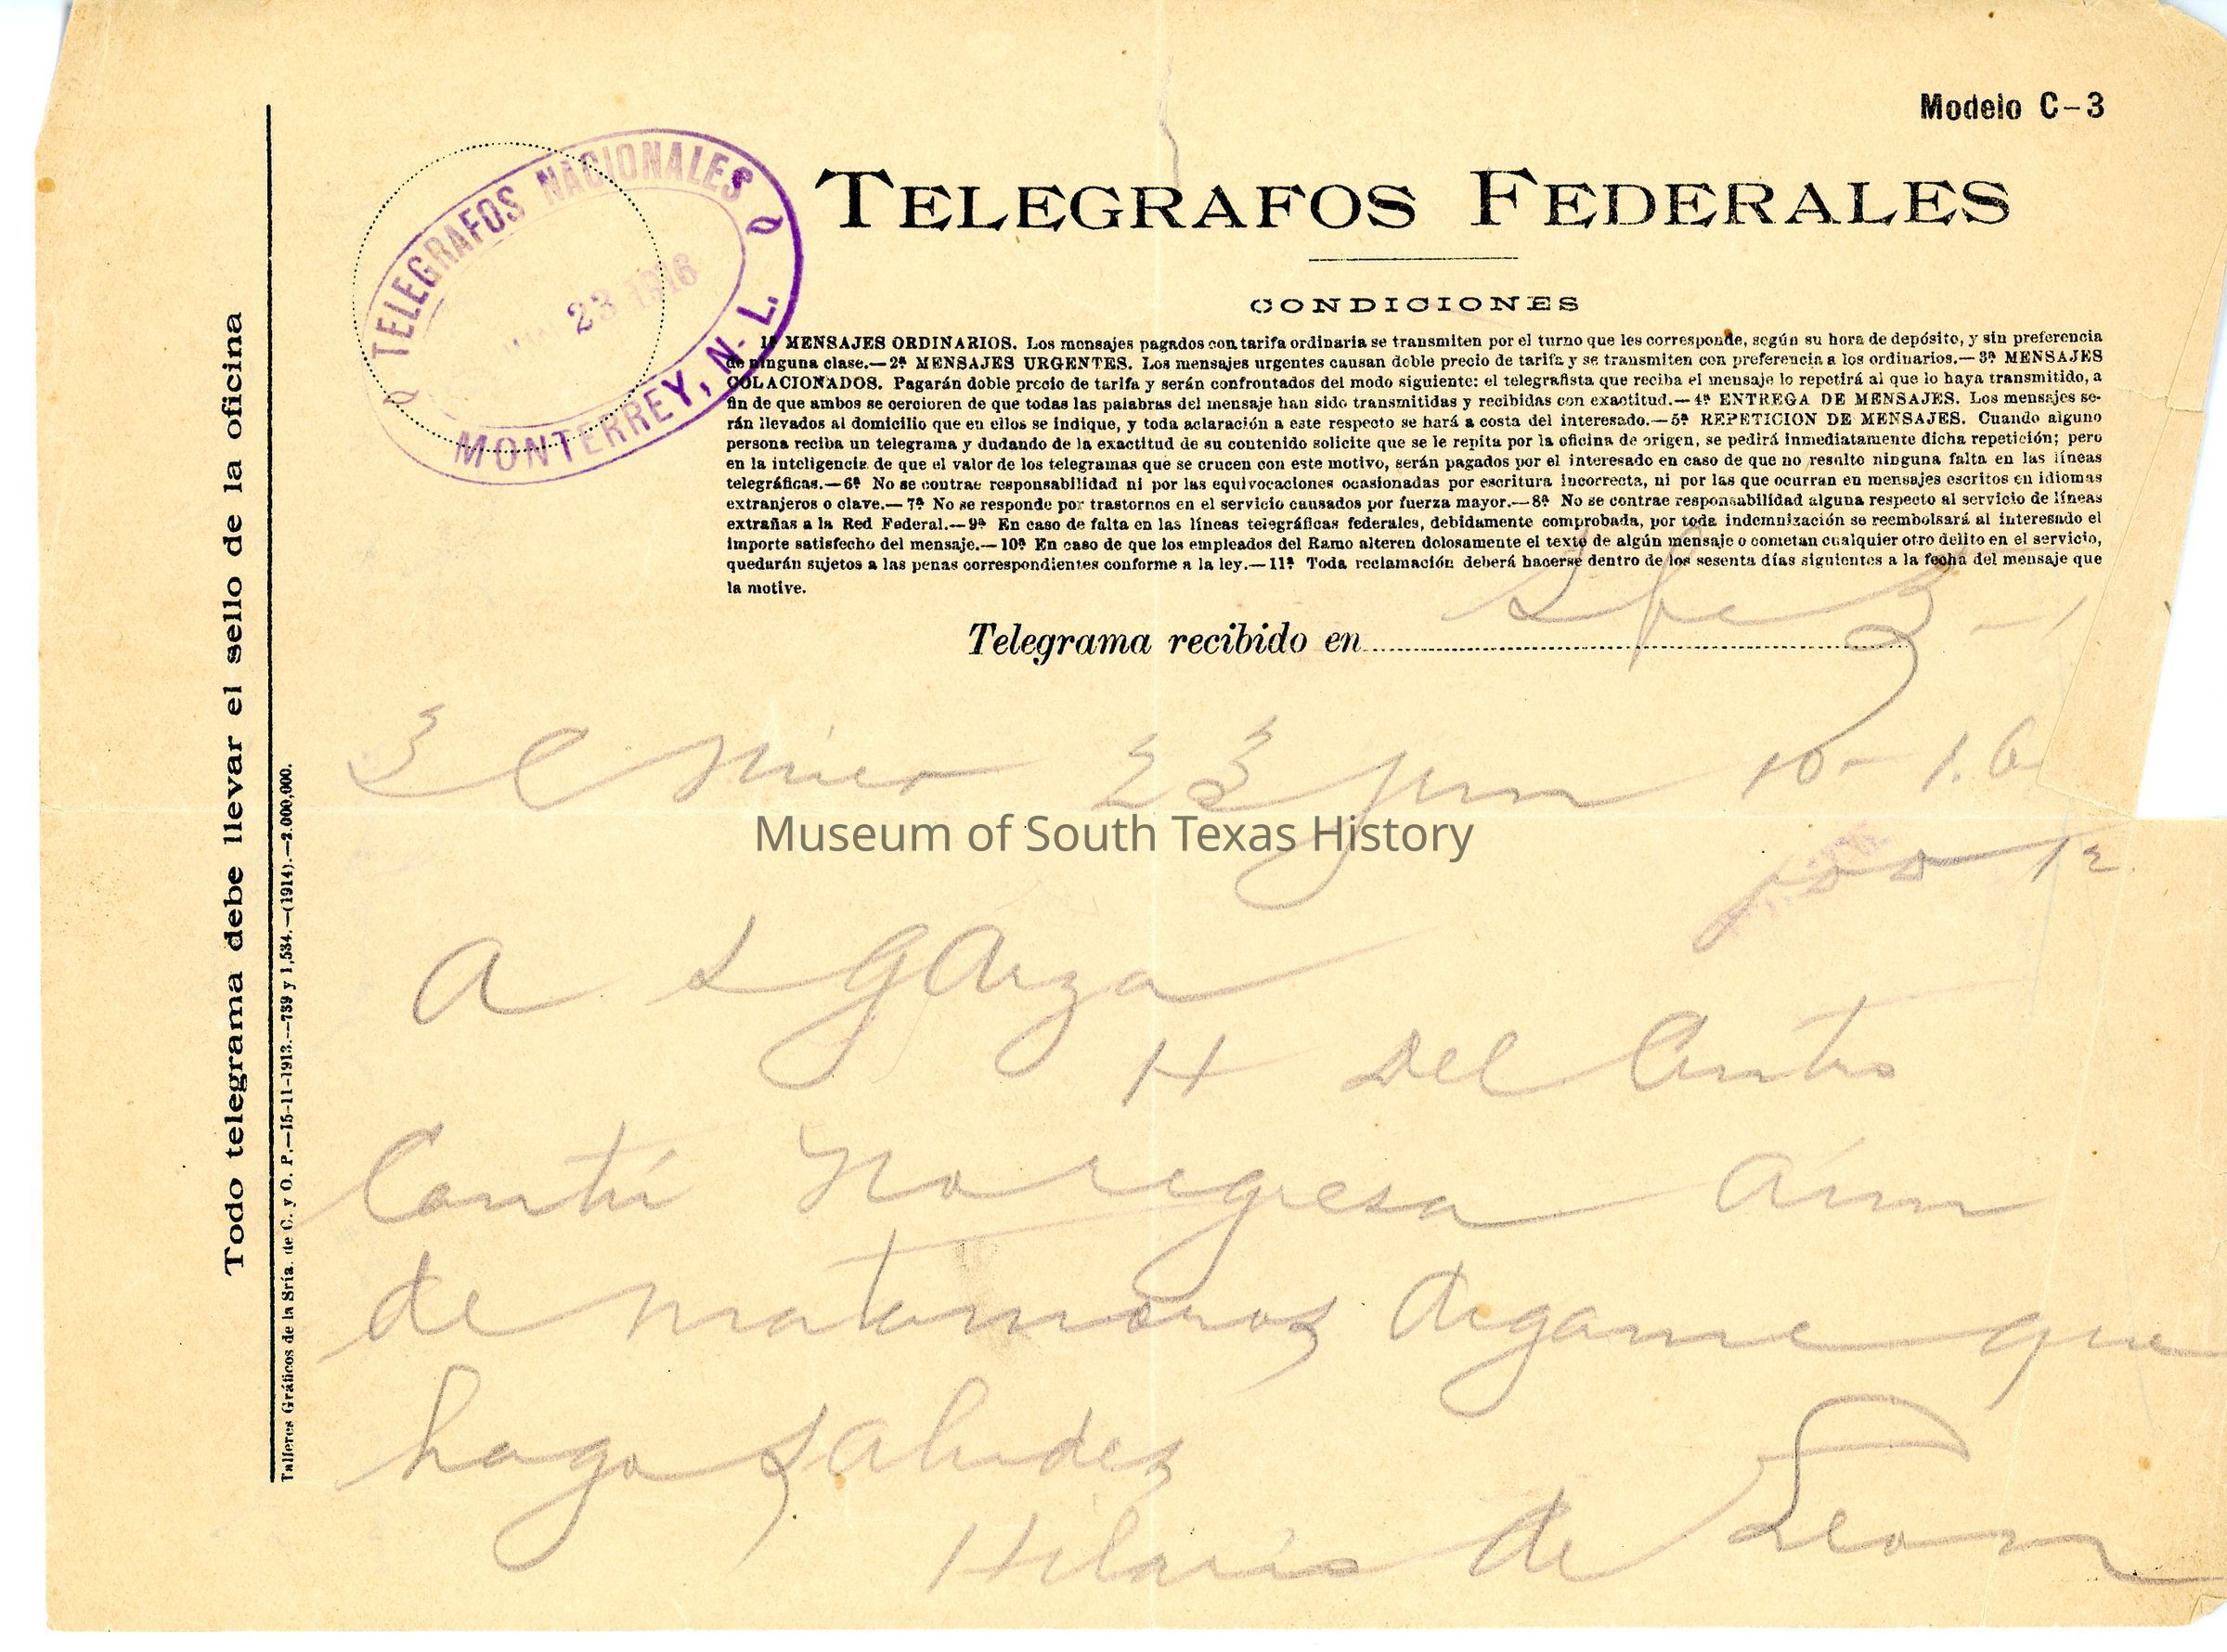 Modelo C-3
TELEGRAFOS NACIONALES
23 1916
MONTERREY, N. L.
TELEGRAFOS FEDERALES
CONDICIONES
1ª MENSAJES ORDINARIOS. Los mensajes pagados con tarifa ordinaria se transmiten por el turno que les corresponde, según su hora de depósito, y sin preferencia
de ninguna clase.—2ª MENSAJES URGENTES. Los mensajes urgentes causan doble precio de tarifa y se transmiten con preferencia a los ordinarios.—3ª MENSAJES
COLACIONADOS. Pagarán doble precio de tarifa y serán confrontados del modo siguiente: el telegrafista que reciba el mensaje lo repetirá al que lo haya transmitido, a
fin de que ambos se cercioren de que todas las palabras del mensaje han sido transmitidas y recibidas con exactitud.—4ª ENTREGA DE MENSAJES. Los mensajes se-
rán llevados al domicilio que en ellos se indique, y toda aclaración a este respecto se hará a costa del interesado.—5ª REPETICION DE MENSAJES. Cuando alguno
persona reciba un telegrama y dudando de la exactitud de su contenido solicite que se le repita por la oficina de origen, se pedirá inmediatamente dicha repetición; pero
en la inteligencia de que el valor de los telegramas que se crucen con este motivo, serán pagados por el interesado en caso de que no resulte ninguna falta en las líneas
telegráficas.—6ª No se contrae responsabilidad ni por las equivocaciones ocasionadas por escritura incorrecta, ni por las que ocurran en mensajes escritos en idiomas
extranjeros o clave.—7ª No se responde por trastornos en el servicio causados por fuerza mayor.—8ª No se contrae responsabilidad alguna respecto al servicio de líneas
extrañas a la Red Federal.—9ª En caso de falta en las líneas telegráficas federales, debidamente comprobada, por toda indemnización se reembolsará al interesado el
importe satisfecho del mensaje.—10ª En caso de que los empleados del Ramo alteren dolosamente el texto de algún mensaje o cometan cualquier otro delito en el servicio,
quedarán sujetos a las penas correspondientes conforme a la ley.—11ª Toda reclamación deberá hacerse dentro de los sesenta días siguientes a la fecha del mensaje que
la motive.
Telegrama recibido en
3 C Mier 23 Jun 10-
12.
A L G Garza
H Del Centro
Cantú no regresa aún
de matamoros digame que
hago saludes
Hilario de Leon
Todo telegrama debe llevar el sello de la oficina
Talleres Gráficos de la Sría. de C. y O. P.—15-11-1913.—739 y 1,534.—(1914).—2.000,000.
Museum of South Texas History